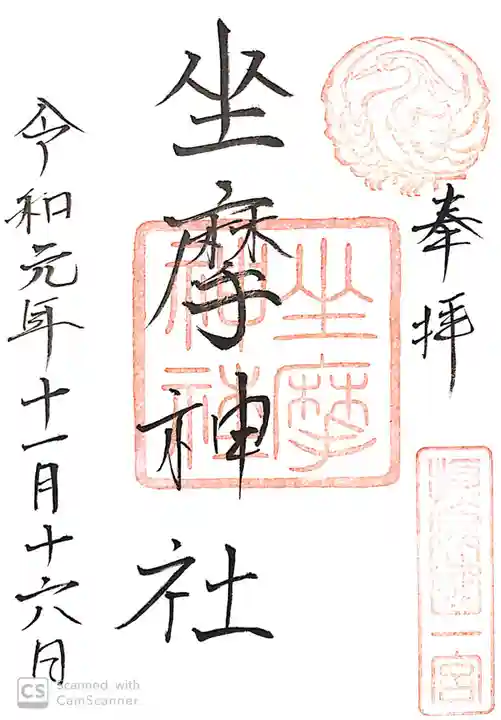 奉拝
坐摩神社
坐摩
神社
令和元年十一月十六日
一宮
CS Scanned with
CamScanner